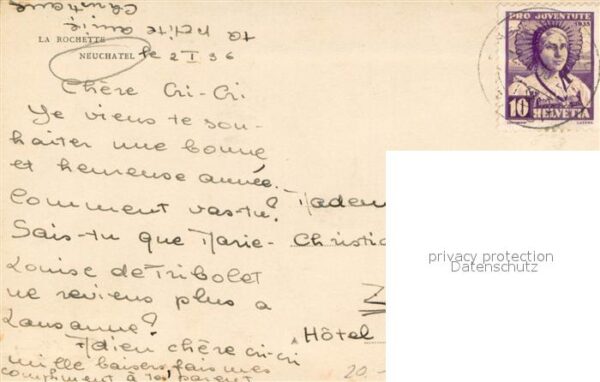 LA ROCHETTE
NEUCHATEL le 2 I 36
Chère Cri-Cri
Je viens te sou-
haiter une bonne
et heureuse année.
Comment vas-tu?
Sais-tu que Marie-
Louise de Tribolet
ne reviens plus a
Lausanne?
Adieu chère cri-cri
mille baisers fais mes
compliment à tes parent
ta petite amie
Christiane
PRO JUVENTUTE
1935
10 HELVETIA
Madem
Christia
Hôtel
privacy protection
Datenschutz
20.-